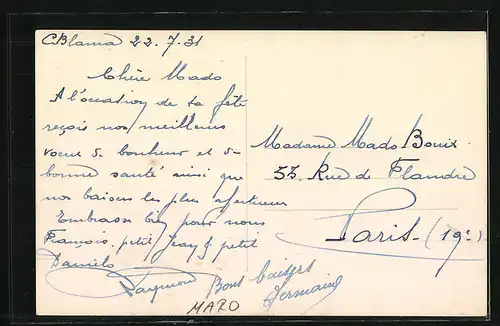 CBlanca 22.7.31
Chère Mado
A l'occation de ta fête
reçois nos meilleures
voeux de bonheur et de
bonne santé ainsi que
nos baisers les plus affectueux
Embrasse bien pour nous
François, petit Jray & petit
Daniels
Raymond Bons baisers
Germaine
MARO
Madame Mado Bouix
55 Rue de Flandre
Paris (19e)